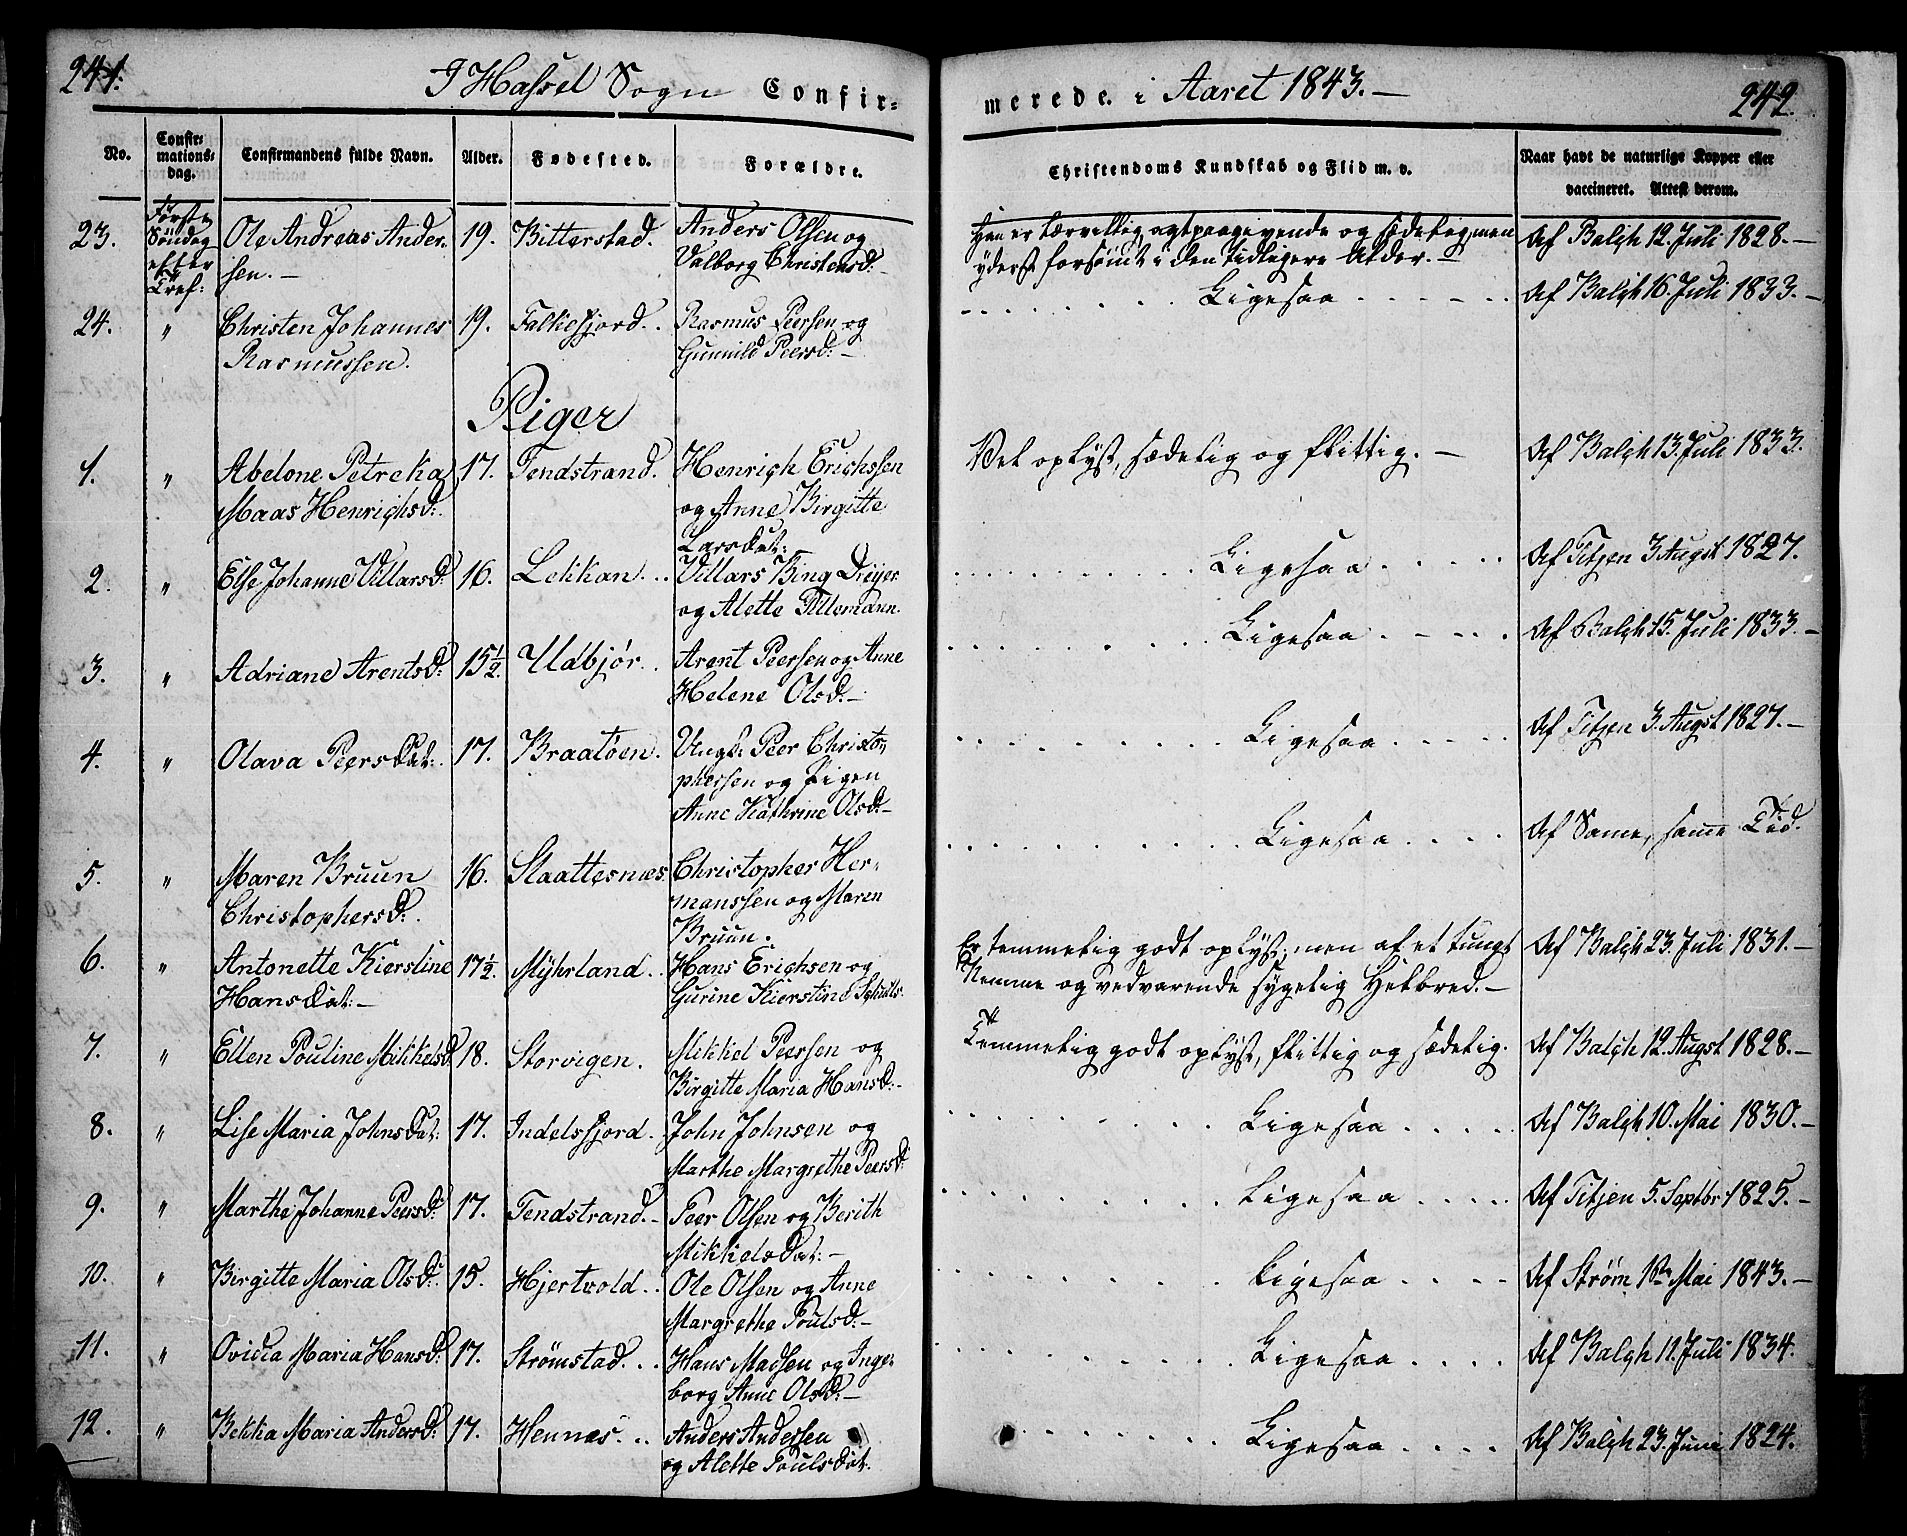 241.
I Hassel Sogn Confir-
merede i Aaret 1843.—
242.
No.
Confir-
mations-
dag.
Confirmandens fulde Navn.
Alder.
Fødested.
Forældre.
Christendoms Kundskab og Flid m. v.
Naar havt de naturlige Kopper eller
vaccineret. Attest derom.
23.
Første
Søndag
efter
Tref:
Ole Andreas Ander-
sen.—
19.
Bitterstad.
Anders Olsen og
Valborg Christensd:
Han er tarvelig, agtpaagivende og sædelig, men
yderst forsømt i den tidligere Alder.—
Af Balch 12. Juli 1828.—
24.
"
Christen Johannes
Rasmussen.
19.
Falkefjord..
Rasmus Peersen og
Gunnild Peersd:—
Ligesaa
Af Balch 16. Juli 1833.—
Piger
1.
"
Abelone Petreka
Maas Henrichsd:
17.
Tendstrand.
Henrich Erichssen
og Anne Birgitte
Larsdat:
Vel oplyst, sædelig og flittig.—
Af Balch 13. Juli 1833.
2.
"
Else Johanne Villarsd:
16.
Lekkan...
Villars Bing Dreyer
og Alette Tillemann.
Ligesaa
Af Titjen 3. Augst 1827.
3.
"
Adriane Arentsd:
15½.
Udbjør..
Arent Peersen og Anne
Helene Olsd:—
Ligesaa
Af Balch 15. Juli 1833.—
4.
"
Olava Peersdat:
17.
Braatøen.
Ungk: Peer Christo-
phersen og Pigen
Anne Kathrine Olsd:—
Ligesaa
Af Titjen 3. Augst 1827.—
5.
"
Maren Bruun
Christophersd:
16.
Slaattesnæs.
Christopher Her-
manssen og Maren
Bruun.
Ligesaa
Af Same, same Tid.
6.
"
Antonette Kierstine
Hansdat:—
17½.
Myhrland..
Hans Erichsen og
Gurine Kierstine
Er temmelig godt oplyst; men af et tungt
Nemme og vedvarende sygelig Helbred.—
Af Balch 23. Juli 1831.—
7.
"
Ellen Pouline Mikkelsd:
18.
Storvigen.
Mikkel Peersen og
Birgitte Maria Hansd:—
Temmelig godt oplyst, flittig og sædelig.
Af Balch 12. Augst 1828.—
8.
"
Lise Maria Johnsdat:
17.
Indelsfjord.
John Johnsen og
Marthe Margrethe Peersd:
Ligesaa
Af Balch 10. Mai 1830.—
9.
"
Marthe Johanne Peersd:
17.
Tendstrand.—
Peer Olsen og Berith
Mikkelsdat:—
Ligesaa
Af Titjen 5. Septbr 1825.—
10.
"
Birgitte Maria Olsd:
15.
Hjertvold..
Ole Olsen og Anne
Margrethe Poulsd:—
Ligesaa
Af Strøm Mai 1843.—
11.
"
Ovidia Maria Hansd:
17.
Strømstad...
Hans Madsen og Inge-
borg Anne Olsd:—
Ligesaa
Af Balch 11. Juli 1834.
12.
"
Bekka Maria Andersd:
17.
Hennæs...
Anders Andersen
og Alette Poulsdat.
Ligesaa
Af Balch 23. Juni 1824.